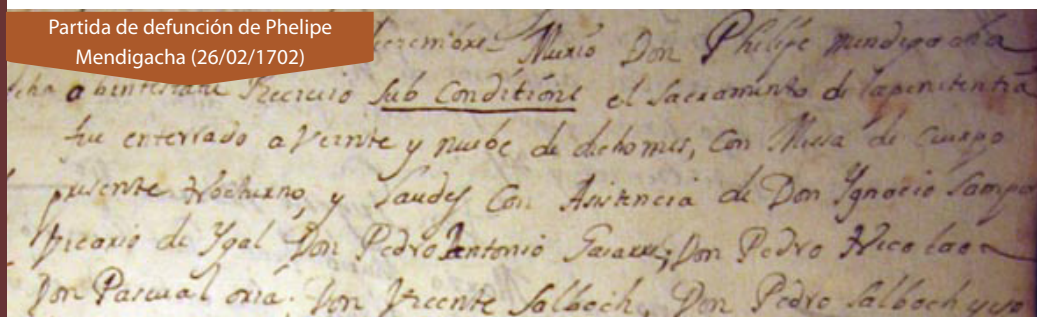 Partida de defunción de Phelipe
Mendigacha (26/02/1702)
Murio Don Phelipe mendigacha
abintestato Recivio sub conditione el Sacramento de la penitentia
fue enterrado a Veinte y nuebe de dicho mes, Con Missa de cuerpo
presente Nocturno, y Laudes Con Asistencia de Don Ygnacio Samper
Vicario de Ygal Don Pedro Antonio Don Pedro Nicolao
Don Pascual oria, Don Vicente Salboch, Don Pedro Salboch y yo